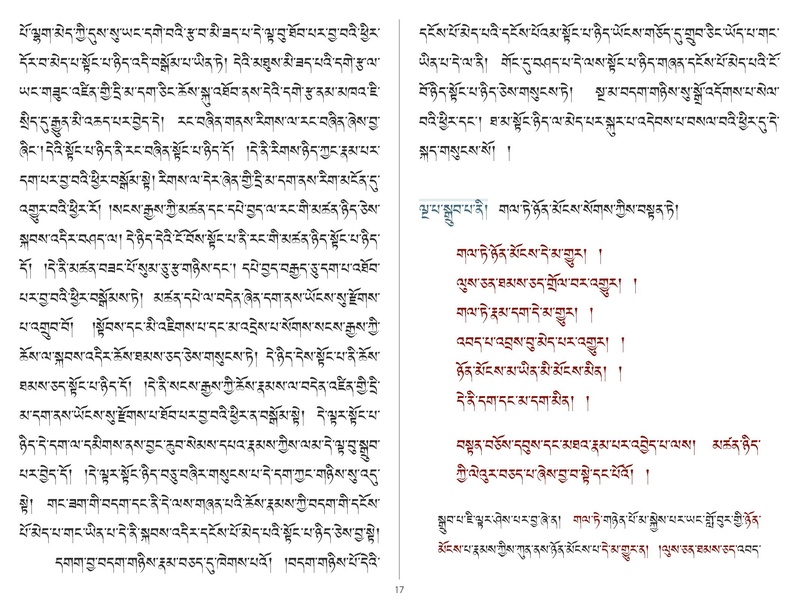 པོ་ལྷག་མེད་ཀྱི་དུས་སུ་ཡང་དགེ་བའི་རྩ་བ་མི་ཟད་པ་དེ་ལྟ་བུ་ཐོབ་པར་བྱ་བའི་ཕྱིར་
དོར་བ་མེད་པ་སྟོང་པ་ཉིད་འདི་བསྒོམ་པ་ཡིན་ཏེ། དེའི་མཐུས་མི་ཟད་པའི་དགེ་རྩ་ལ་
ཡང་གཟུང་འཛིན་གྱི་དྲི་མ་དག་ཅིང་ཆོས་སྐུ་འཐོབ་ནས་དེའི་དགེ་རྩ་ནམ་མཁའ་ཇི་
སྲིད་དུ་རྒྱུན་མི་འཆད་པར་བྱེད་དེ། རང་བཞིན་གནས་རིགས་ལ་རང་བཞིན་ཞེས་བྱ་
ཞིང་། དེའི་སྟོང་པ་ཉིད་ནི་རང་བཞིན་སྟོང་པ་ཉིད་དོ། །དེ་ནི་རིགས་ཉིད་ཀྱང་རྣམ་པར་
དག་པར་བྱ་བའི་ཕྱིར་བསྒོམ་སྟེ། རིགས་ལ་དེར་ཞེན་གྱི་དྲི་མ་དག་ནས་རིག་མངོན་དུ་
འགྱུར་བའི་ཕྱིར་རོ། །སངས་རྒྱས་ཀྱི་མཚན་དང་དཔེ་བྱད་ལ་རང་གི་མཚན་ཉིད་ཅེས་
སྐབས་འདིར་བཤད་ལ། དེ་ཉིད་དེའི་ངོ་བོས་སྟོང་པ་ནི་རང་གི་མཚན་ཉིད་སྟོང་པ་ཉིད་
དོ། །དེ་ནི་མཚན་བཟང་པོ་སུམ་ཅུ་རྩ་གཉིས་དང་། དཔེ་བྱད་བརྒྱད་ཅུ་དག་པ་འཐོབ་
པར་བྱ་བའི་ཕྱིར་བསྒོམས་ཏེ། མཚན་དཔེ་ལ་བདེན་ཞེན་དག་ནས་ཡོངས་སུ་རྫོགས་
པ་འགྲུབ་བོ། །སྟོབས་དང་མི་འཇིགས་པ་དང་མ་འདྲེས་པ་སོགས་སངས་རྒྱས་ཀྱི་
ཆོས་ལ་སྐབས་འདིར་ཆོས་ཐམས་ཅད་ཅེས་གསུངས་ཏེ། དེ་ཉིད་དེས་སྟོང་པ་ནི་ཆོས་
ཐམས་ཅད་སྟོང་པ་ཉིད་དོ། །དེ་ནི་སངས་རྒྱས་ཀྱི་ཆོས་རྣམས་ལ་བདེན་འཛིན་གྱི་དྲི་
མ་དག་ནས་ཡོངས་སུ་རྫོགས་པ་ཐོབ་པར་བྱ་བའི་ཕྱིར་ན་བསྒོམ་སྟེ། དེ་ལྟར་སྟོང་པ་
ཉིད་དེ་དག་ལ་དམིགས་ནས་བྱང་ཆུབ་སེམས་དཔའ་རྣམས་ཀྱིས་ལམ་དེ་ལྟ་བུ་སྒྲུབ་
པར་བྱེད་དོ། །དེ་ལྟར་སྟོང་ཉིད་བཅུ་བཞིར་གསུངས་པ་དེ་དག་ཀྱང་གཉིས་སུ་འདུ་
སྟེ། གང་ཟག་གི་བདག་དང་ནི་དེ་ལས་གཞན་པའི་ཆོས་རྣམས་ཀྱི་བདག་གི་དངོས་
པོ་མེད་པ་གང་ཡིན་པ་དེ་ནི་སྐབས་འདིར་དངོས་པོ་མེད་པའི་སྟོང་པ་ཉིད་ཅེས་བྱ་སྟེ།
དགག་བྱ་བདག་གཉིས་རྣམ་བཅད་དུ་ཁེགས་པའོ། །བདག་གཉིས་པོ་དེའི་
དངོས་པོ་མེད་པའི་དངོས་པོའམ་སྟོང་པ་ཉིད་ཡོངས་གཅོད་དུ་གྲུབ་ཅིང་ཡོད་པ་གང་
ཡིན་པ་དེ་ལ་ནི། གོང་དུ་བཤད་པ་དེ་ལས་སྟོང་པ་ཉིད་གཞན་དངོས་པོ་མེད་པའི་ངོ་
བོ་ཉིད་སྟོང་པ་ཉིད་ཅེས་གསུངས་ཏེ། སྔ་མ་བདག་གཉིས་སུ་སྒྲོ་འདོགས་པ་སེལ་
བའི་ཕྱིར་དང་། ཐ་མ་སྟོང་ཉིད་ལ་མེད་པར་སྐུར་པ་འདེབས་པ་བསལ་བའི་ཕྱིར་དུ་དེ་
སྐད་གསུངས་སོ། །
ལྔ་པ་སྒྲུབ་པ་ནི། གལ་ཏེ་ཉོན་མོངས་སོགས་ཀྱིས་བསྟན་ཏེ།
གལ་ཏེ་ཉོན་མོངས་དེ་མ་གྱུར། །
ལུས་ཅན་ཐམས་ཅད་གྲོལ་བར་འགྱུར། །
གལ་ཏེ་རྣམ་དག་དེ་མ་གྱུར། །
འབད་པ་འབྲས་བུ་མེད་པར་འགྱུར། །
ཉོན་མོངས་མ་ཡིན་མི་མོངས་མིན། །
དེ་ནི་དག་དང་མ་དག་མིན། །
བསྟན་བཅོས་དབུས་དང་མཐའ་རྣམ་པར་འབྱེད་པ་ལས། མཚན་ཉིད་
ཀྱི་ལེའུར་བཅད་པ་ཞེས་བྱ་བ་སྟེ་དང་པོའོ། །
སྒྲུབ་པ་ཇི་ལྟར་ཤེས་པར་བྱ་ཞེ་ན། གལ་ཏེ་གཉེན་པོ་མ་སྐྱེས་པར་ཡང་གློ་བུར་གྱི་ཉོན་
མོངས་པ་རྣམས་ཀྱིས་ཀུན་ནས་ཉོན་མོངས་པ་དེ་མ་གྱུར་ན། །ལུས་ཅན་ཐམས་ཅད་འབད་
17